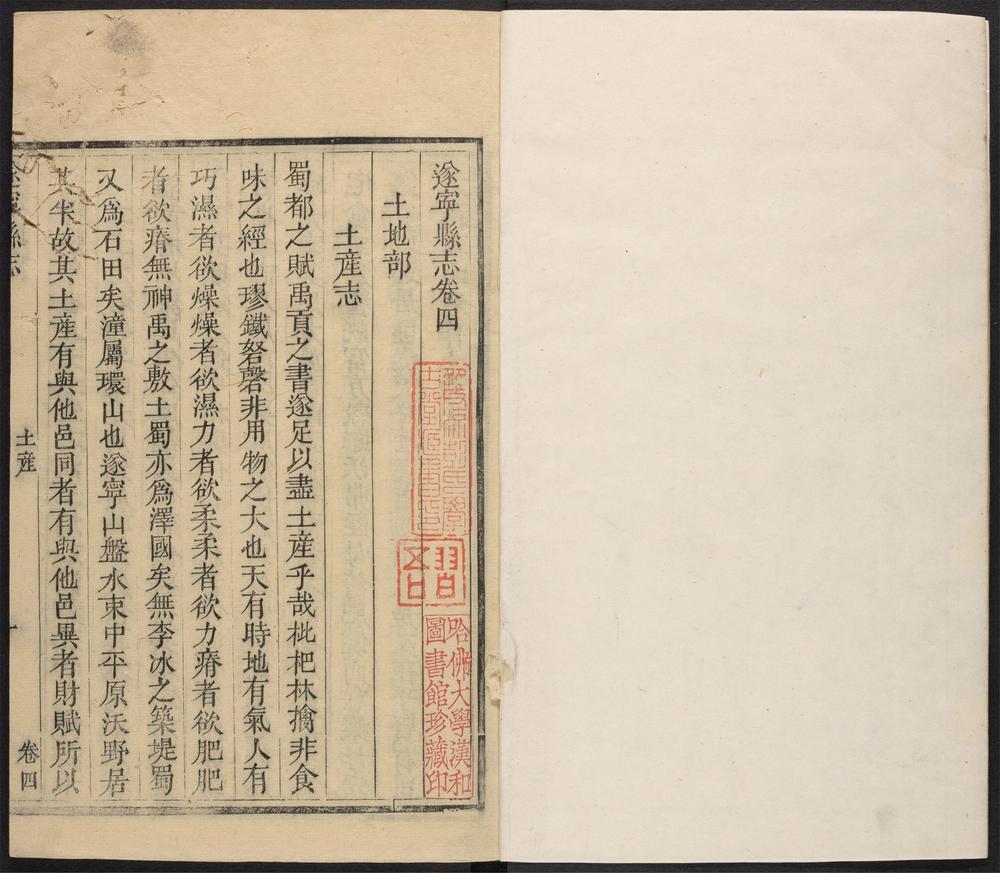 遂寧縣志卷四
土地部
土產志
蜀都之賦禹貢之書遂足以盡土產乎哉枇杷林擒非食
味之經也璆鐵砮磬非用物之大也天有時地有氣人有
巧濕者欲燥燥者欲濕力者欲柔柔者欲力瘠者欲肥肥
者欲瘠無神禹之敷土蜀亦爲澤國矣無李冰之築堤蜀
又爲石田矣潼屬環山也遂寧山盤水束中平原沃野居
其半故其土產有與他邑同者有與他邑異者財賦所以
遂寧縣志
土產
一
卷四
哈佛大學漢和
圖書館珍藏印